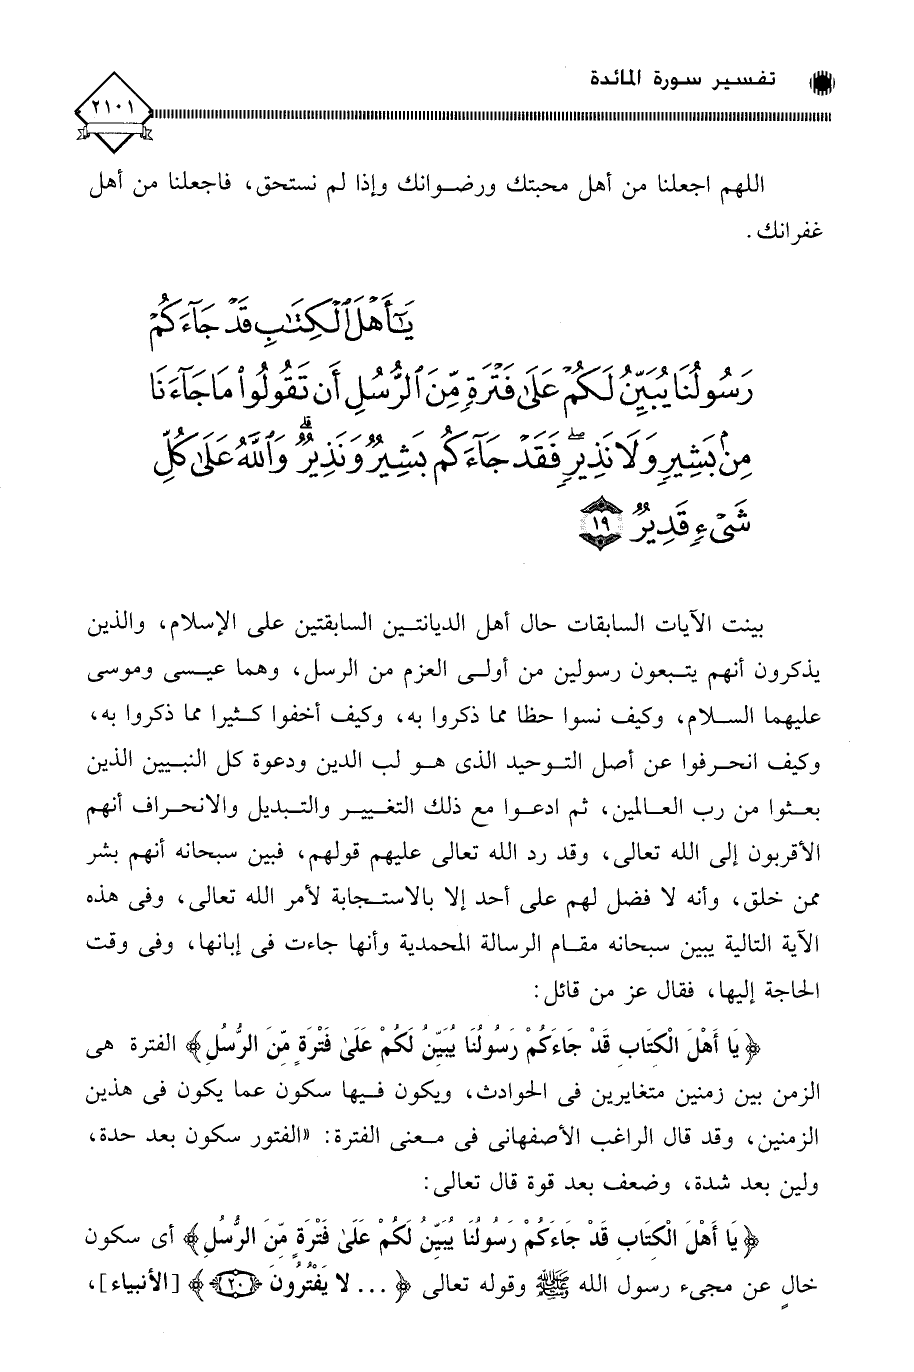 تفسير سورة المائدة
٢١٠١
اللهم اجعلنا من أهل محبتك ورضوانك وإذا لم نستحق، فاجعلنا من أهل
غفرانك.
يَٰٓأَهْلَ ٱلْكِتَٰبِ قَدْ جَآءَكُمْ
رَسُولُنَا يُبَيِّنُ لَكُمْ عَلَىٰ فَتْرَةٍ مِّنَ ٱلرُّسُلِ أَن تَقُولُوا۟ مَا جَآءَنَا
مِنۢ بَشِيرٍ وَلَا نَذِيرٍ ۖ فَقَدْ جَآءَكُم بَشِيرٌ وَنَذِيرٌ ۗ وَٱللَّهُ عَلَىٰ كُلِّ
شَىْءٍ قَدِيرٌ ١٩
بينت الآيات السابقات حال أهل الديانتين السابقتين على الإسلام، والذين
يذكرون أنهم يتبعون رسولين من أولى العزم من الرسل، وهما عيسى وموسى
عليهما السلام، وكيف نسوا حظا مما ذكروا به، وكيف أخفوا كثيرا مما ذكروا به،
وكيف انحرفوا عن أصل التوحيد الذى هو لب الدين ودعوة كل النبيين الذين
بعثوا من رب العالمين، ثم ادعوا مع ذلك التغيير والتبديل والانحراف أنهم
الأقربون إلى الله تعالى، وقد رد الله تعالى عليهم قولهم، فبين سبحانه أنهم بشر
ممن خلق، وأنه لا فضل لهم على أحد إلا بالاستجابة لأمر الله تعالى، وفى هذه
الآية التالية يبين سبحانه مقام الرسالة المحمدية وأنها جاءت فى إبانها، وفى وقت
الحاجة إليها، فقال عز من قائل:
﴿يَا أَهْلَ الْكِتَابِ قَدْ جَاءَكُمْ رَسُولُنَا يُبَيِّنُ لَكُمْ عَلَىٰ فَتْرَةٍ مِّنَ الرُّسُلِ﴾ الفترة هى
الزمن بين زمنين متغايرين فى الحوادث، ويكون فيها سكون عما يكون فى هذين
الزمنين، وقد قال الراغب الأصفهانى فى معنى الفترة: «الفتور سكون بعد حدة،
ولين بعد شدة، وضعف بعد قوة قال تعالى:
﴿يَا أَهْلَ الْكِتَابِ قَدْ جَاءَكُمْ رَسُولُنَا يُبَيِّنُ لَكُمْ عَلَىٰ فَتْرَةٍ مِّنَ الرُّسُلِ﴾ أى سكون
خالٍ عن مجىء رسول الله ﷺ وقوله تعالى ﴿... لا يَفْتُرُونَ ﴿٢٠﴾﴾ [الأنبياء]،